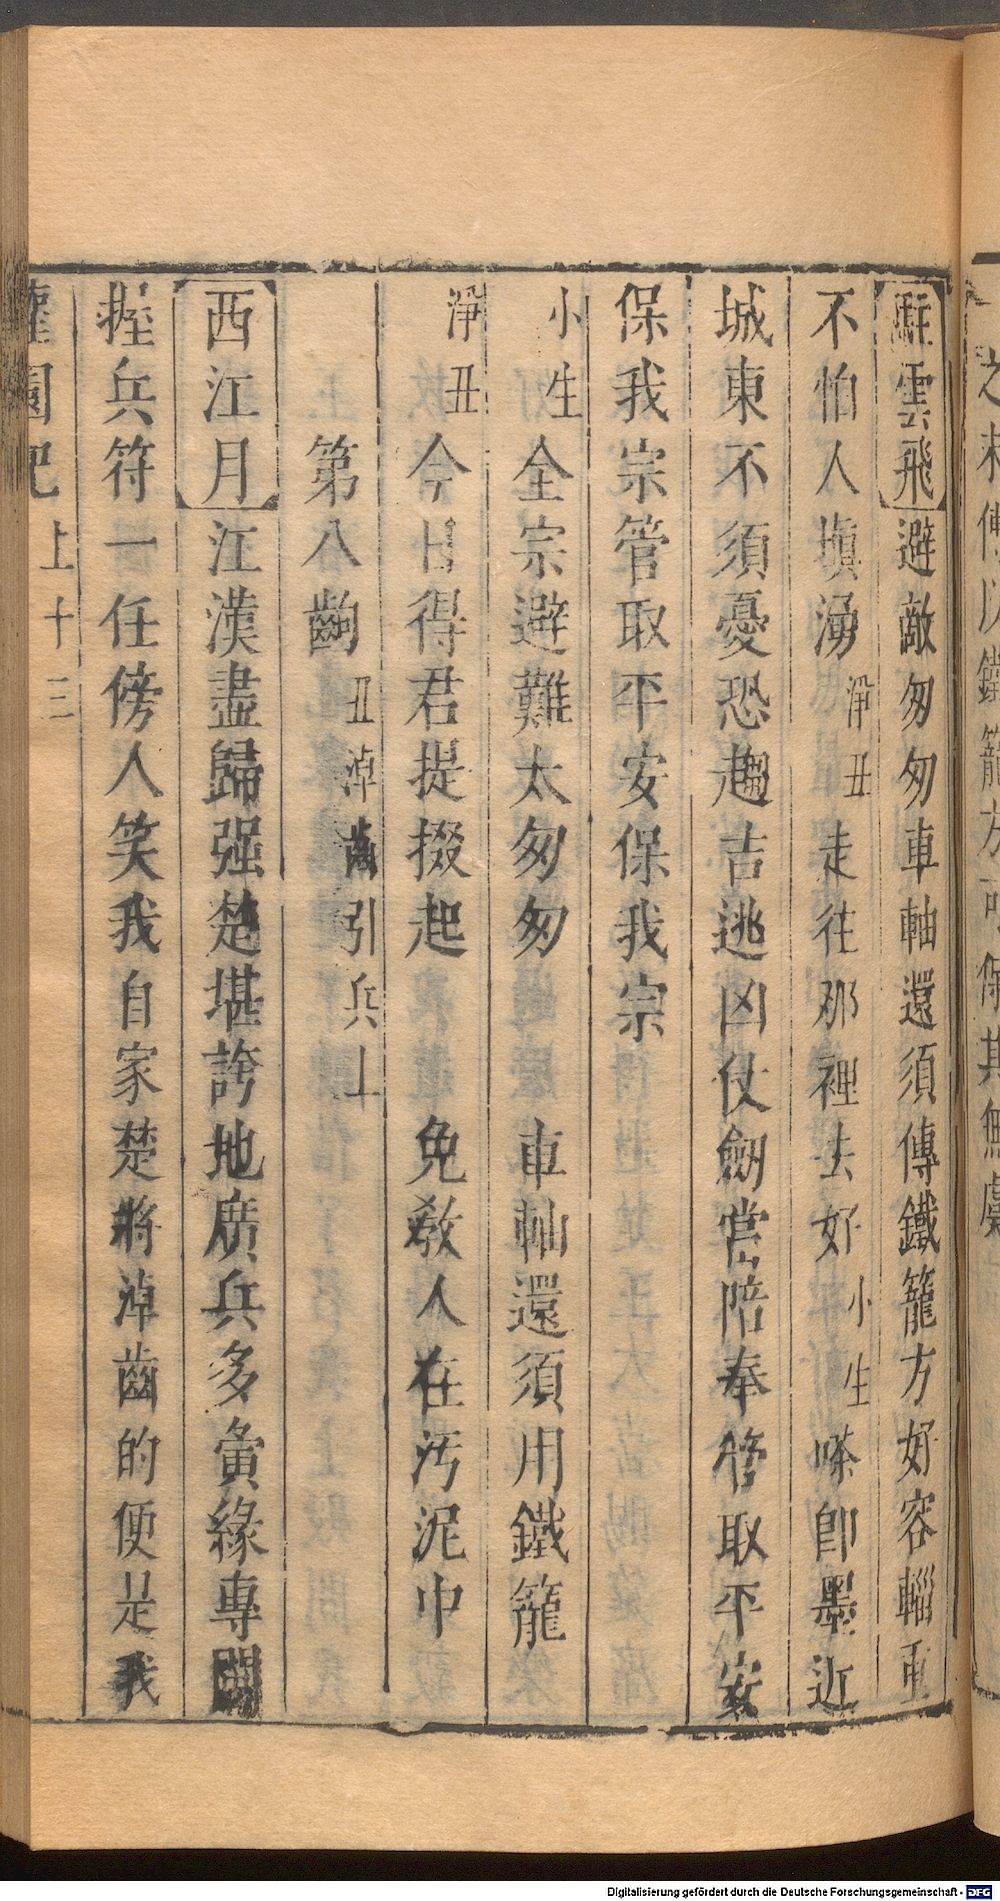 駐雲飛避敵匆匆車軸還須傳鐵籠方好容輜重
不怕人塡湧淨丑走往那裡去好小生嗏卽墨近
城東不須憂恐趨吉逃凶仗劒當陪奉管取平安
保我宗管取平安保我宗
小生全宗避難太匆匆　車軸還須用鐵籠
淨丑今日得君提掇起　免敎人在汚泥中
第八齣丑淖齒引兵上
西江月江漢盡歸强楚堪誇地廣兵多夤緣專閫
握兵符一任傍人笑我自家楚將淖齒的便是我
灌園記上十三
之耒傳以鐵籠方可保其無虞
Digitalisierung gefördert durch die Deutsche Forschungsgemeinschaft - DFG